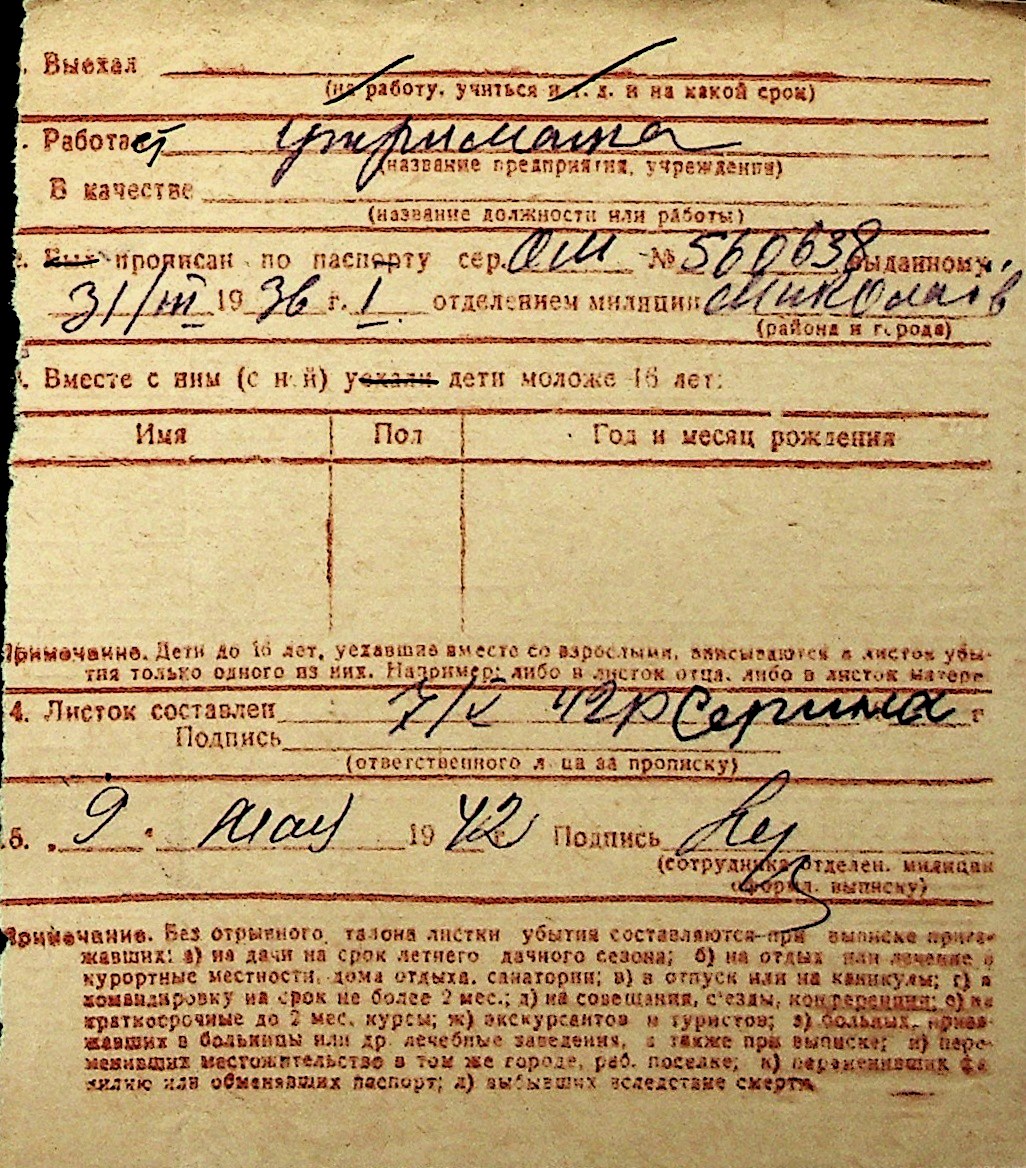 . Выехал
(на работу, учиться и т. д. и на какой срок)
. Работает утримана
(название предприятия, учреждения)
В качестве
(название должности или работы)
. Был прописан по паспорту сер. ОМ № 560638 выданному,
31/III 1936 г. I отделением милиции Миколаїв
(района и города)
. Вместе с ним (с ней) уехали дети моложе 16 лет:
Имя Пол Год и месяц рождения
Примечание. Дети до 16 лет, уехавшие вместе со взрослыми, вписываются в листок убы-
тия только одного из них. Например: либо в листок отца, либо в листок матери
4. Листок составлен 7/V 42р г
Подпись
(ответственного лица за прописку)
5. „ 9 " мая 1942 г. Подпись
(сотрудника отделен. милиции
оформл. выписку)
Примечание. Без отрывного талона листки убытия составляются при выписке приез-
жавших: а) на дачи на срок летнего дачного сезона; б) на отдых или лечение в
курортные местности, дома отдыха, санатории; в) в отпуск или на каникулы; г) в
командировку на срок не более 2 мес.; д) на совещания, с'езды, конференции; е) на
краткосрочные до 2 мес. курсы; ж) экскурсантов и туристов; з) больных, приез-
жавших в больницы или др. лечебные заведения, а также при выписке; и) пере-
менивших местожительство в том же городе, раб. поселке; к) переменивших фа-
милию или обменявших паспорт; л) выбывших вследствие смерти.